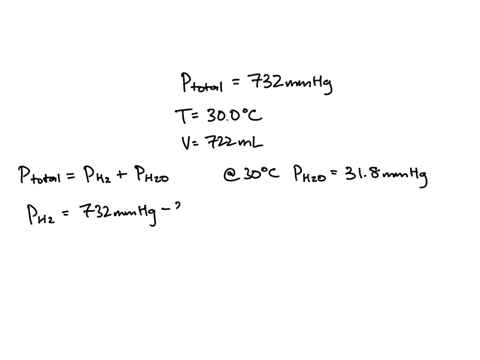 Ptotal = 732mmHg
T = 30.0°C
V = 722 mL
Ptotal = PH2 + PH2O @ 30°C PH2O = 31.8 mmHg
PH2 = 732mmHg -